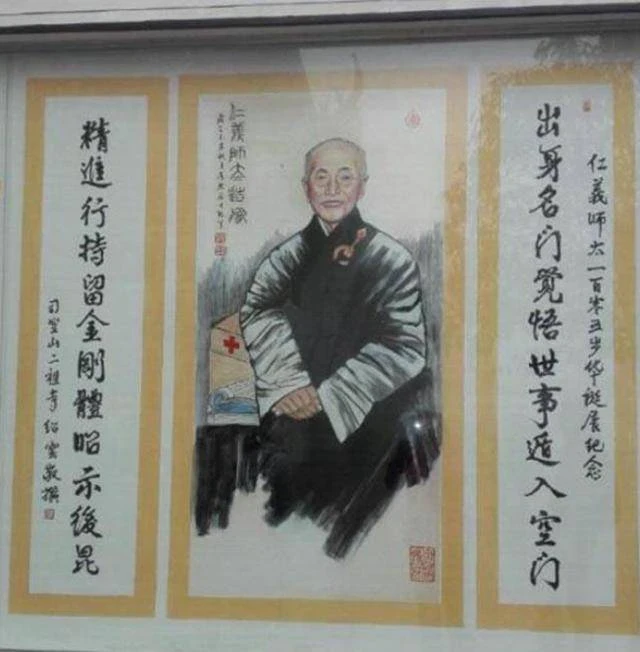 仁義師太一百零五岁华诞展纪念
出身名门覺悟世事遁入空门
仁義師太造像
精進行持留金剛體昭示後昆
司空山二祖寺绍雲敬撰